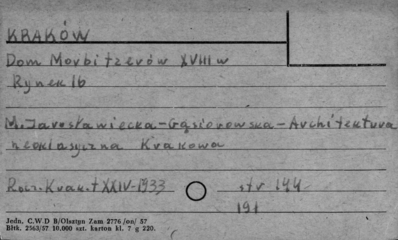 KRAKÓW
Dom Morbitzerów XVIII w
Rynek 16
M. Jarosławiecka-Gąsiorowska - Architektura
neoklasyczna Krakowa
Rocz. Krak. t XXIV-1933 str 144
191
Jedn. C.W.D B/Olsztyn Zam 2776 /on/ 57
Bltk. 2563/57 10.000 szt. karton kl. 7 g 220.